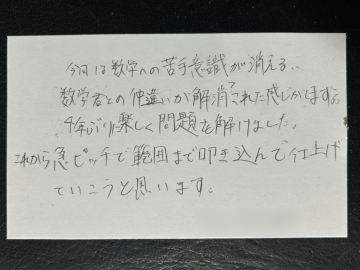 今日は数学への苦手意識が消える..
数学君との仲違いが解消された感じがします。
4年ぶり楽しく問題を解けました。
これから急ピッチで範囲まで叩き込んで仕上げ
ていこうと思います。